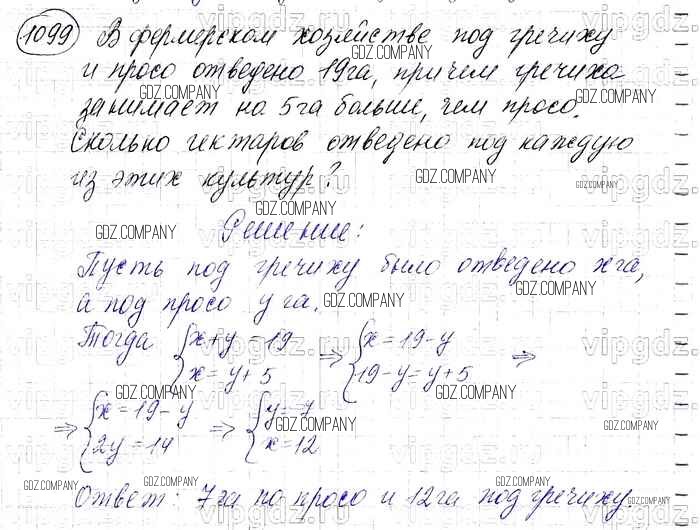 1099 В фермерском хозяйстве под гречиху
и просо отведено 19га, причем гречиха
занимает на 5га больше, чем просо.
Сколько гектаров отведено под каждую
из этих культур?
Решение:
Пусть под гречиху было отведено x га,
а под просо y га.
Тогда { x+y=19 x=y+5 ⇒ { x=19-y 19-y=y+5 ⇒
⇒ { x=19-y 2y=14 ⇒ { y=7 x=12
Ответ: 7га по просо и 12га под гречиху.
GDZ.COMPANY
vipgdz.ru